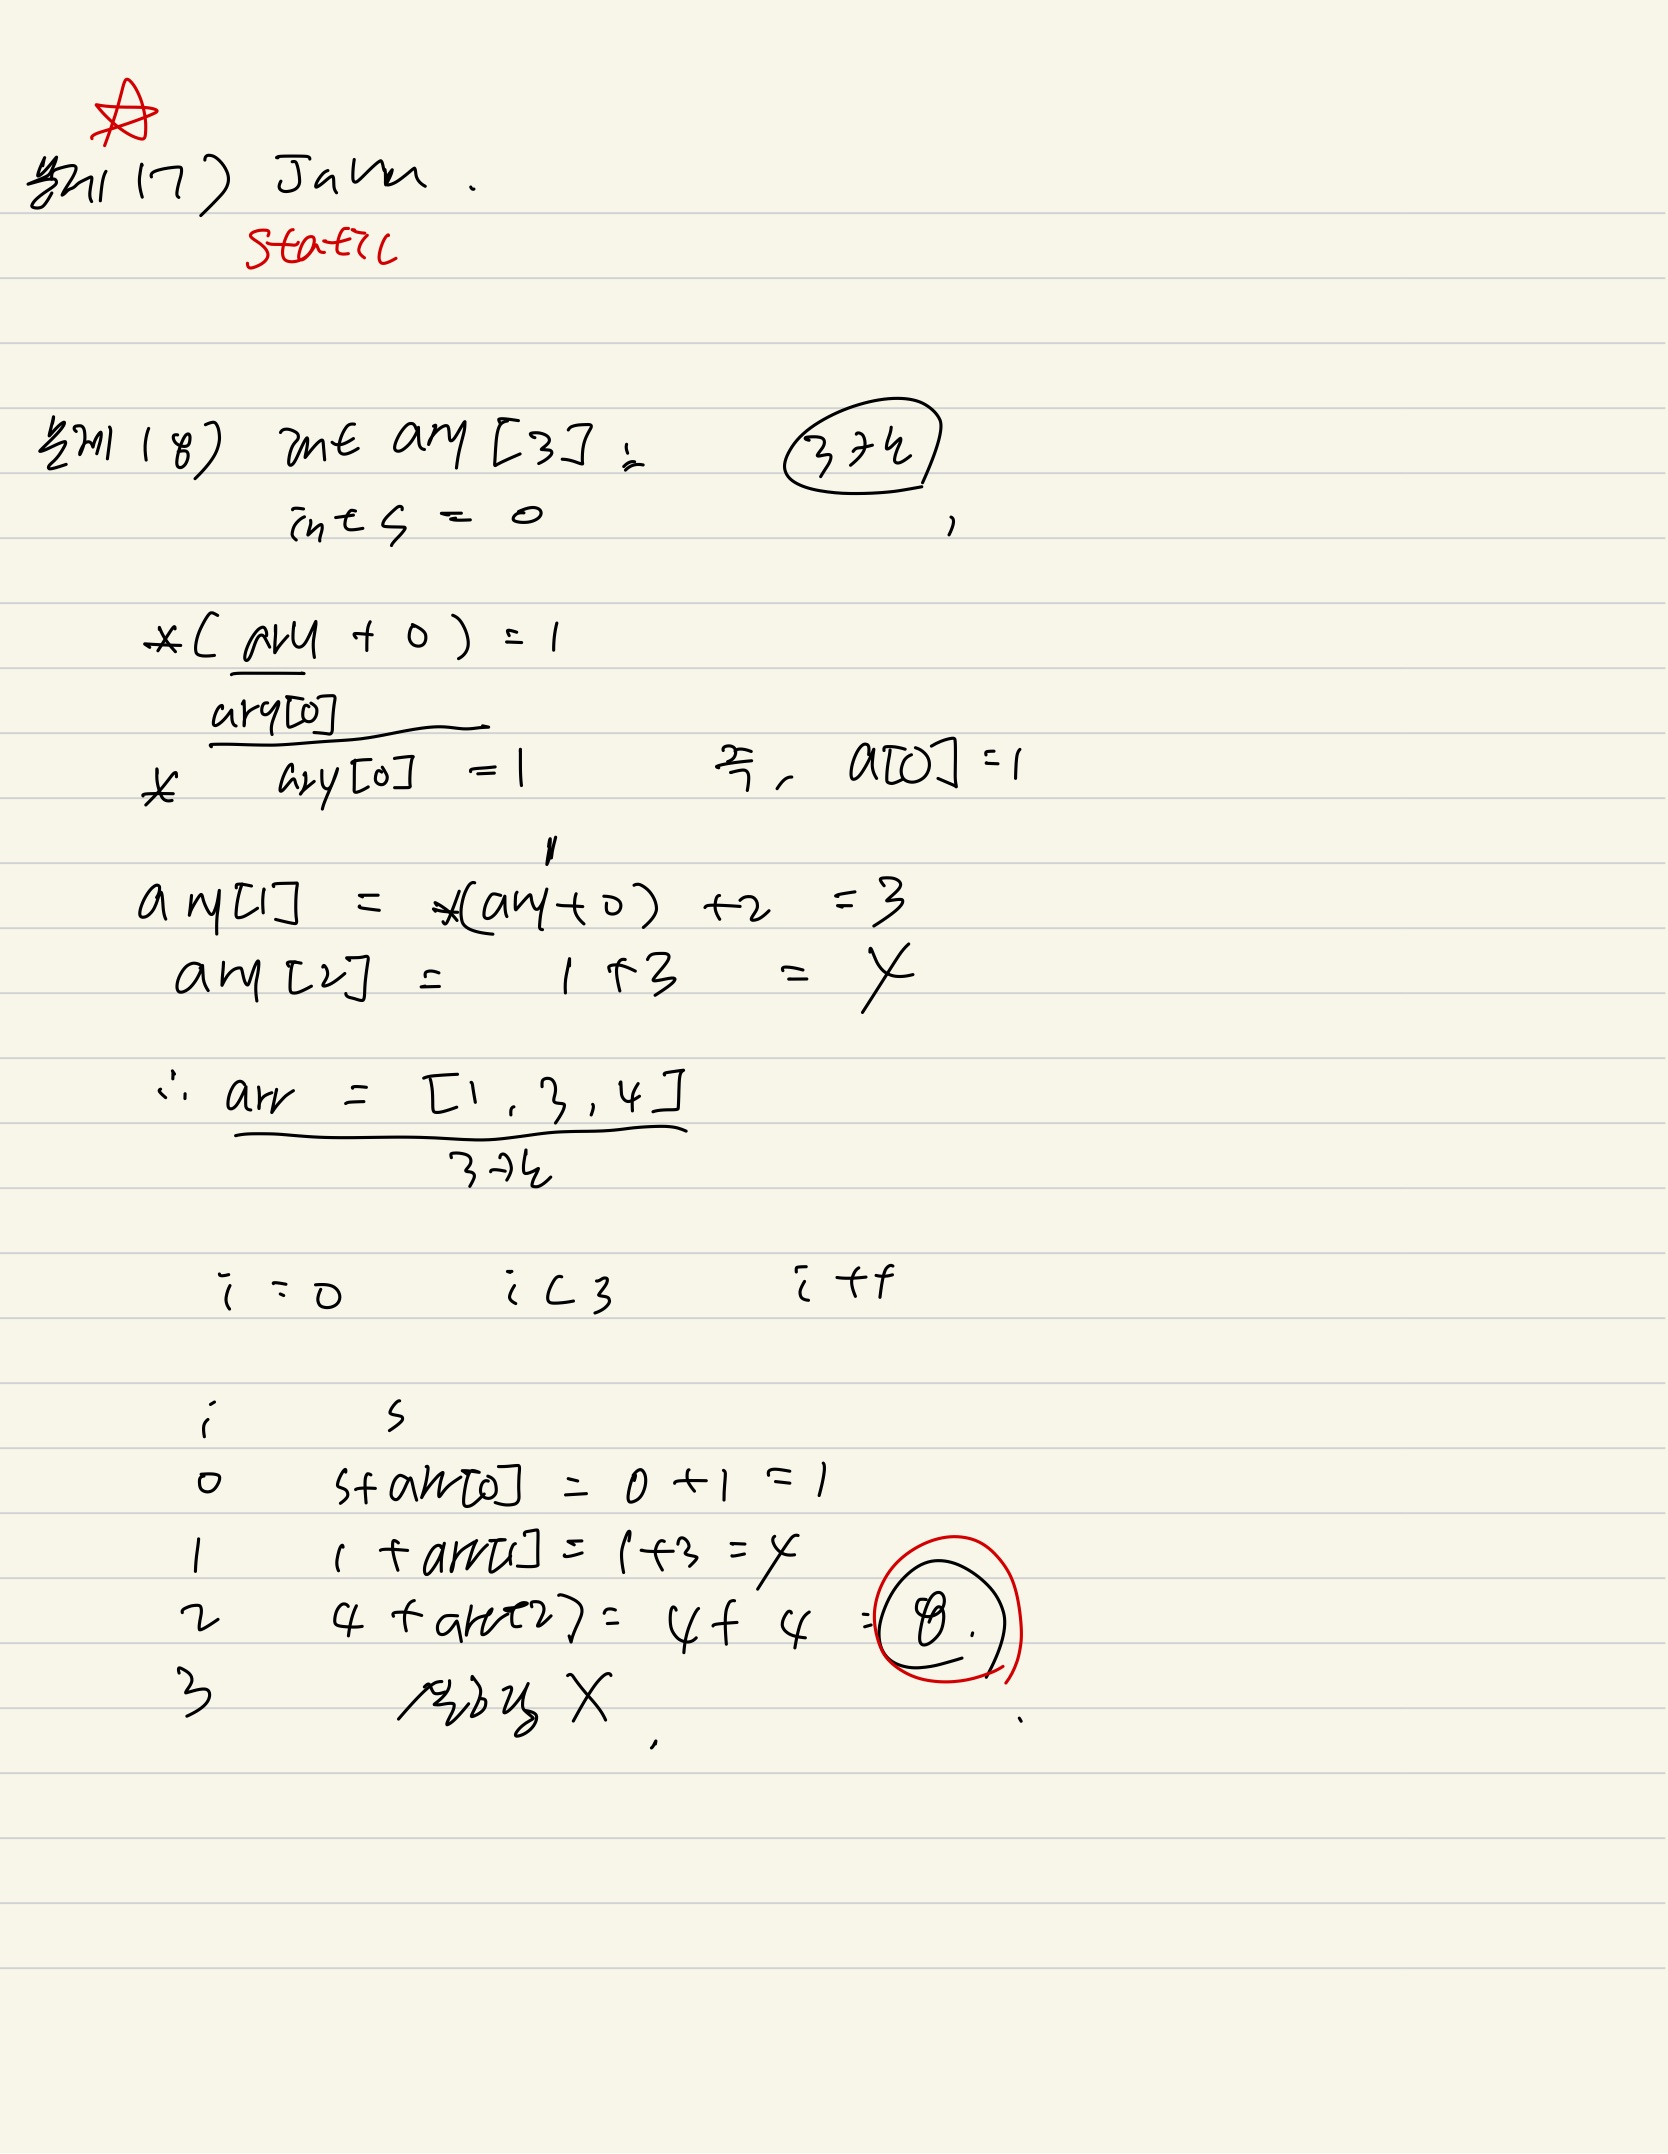 문제 17) Java.
static
문제 18) int ary [3]; 3개
int s = 0
*(ary + 0) = 1
ary[0]
* ary[0] = 1 즉, a[0] = 1
1
ary[1] = *(ary+0) +2 = 3
ary[2] = 1 + 3 = 4
∴ arr = [1, 3, 4]
3개
i = 0 i < 3 i ++
i s
0 s+arr[0] = 0 + 1 = 1
1 1 + arr[1] = 1+3 = 4
2 4 + arr[2] = 4 + 4 = 8.
3 X